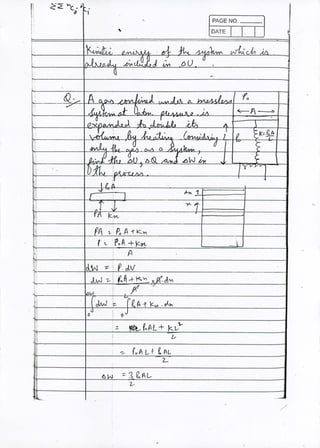 PAGE NO.
DATE
Kinetic energy of the system which is
already included in ΔU.
Q. A gas confined under a massless
system at atm. pressure is
expanded to double its
volume by heating. Considering
only the gas as a system,
find the ΔU, ΔQ and ΔW in
the process.
P₀
A
P₀
K = P₀A
L
P₀A
dx
x
PA Kx
PA = P₀A + Kx
P = P₀A + Kx
A
dW = P dV
dW = P₀A + Kx × A dx
A
∫dW = ∫P₀A + Kx . dx
0 0
= P₀AL + KL²
2
= P₀AL + P₀AL
2
ΔW = 3 P₀AL
2